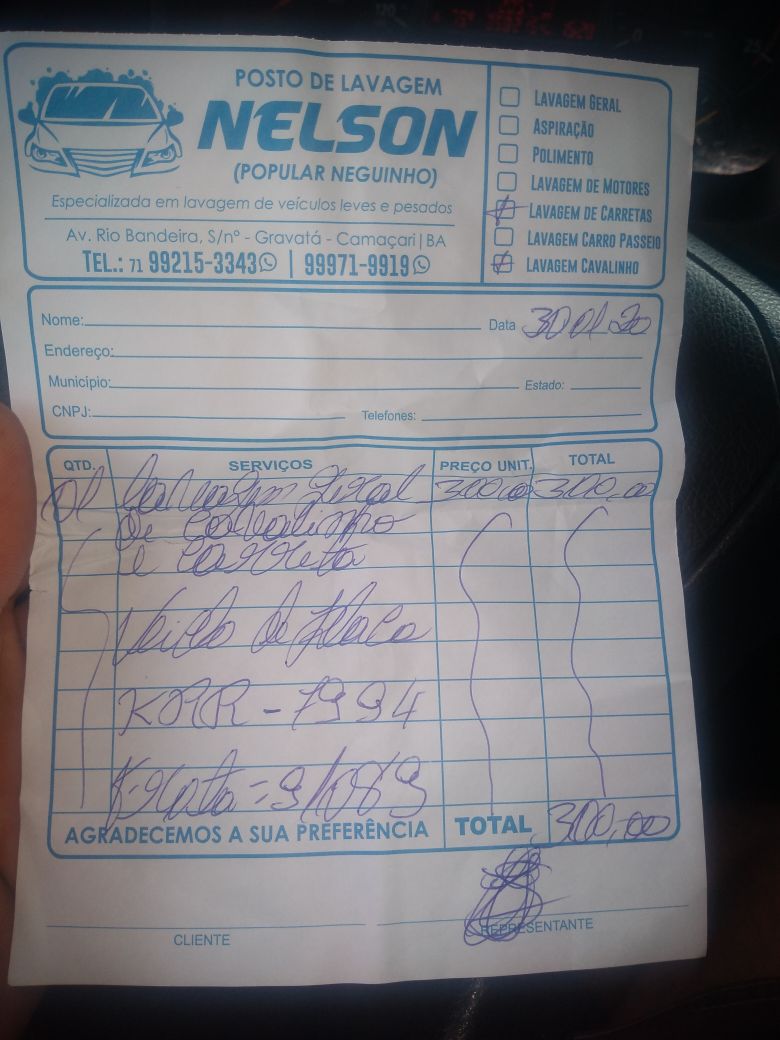 POSTO DE LAVAGEM
NELSON
(POPULAR NEGUINHO)
Especializada em lavagem de veículos leves e pesados
Av. Rio Bandeira, S/nº - Gravatá - Camaçari|BA
TEL.: 71 99215-3343 | 99971-9919
LAVAGEM GERAL
ASPIRAÇÃO
POLIMENTO
LAVAGEM DE MOTORES
LAVAGEM DE CARRETAS
LAVAGEM CARRO PASSEIO
LAVAGEM CAVALINHO
Nome: Data 30 01 20
Endereço:
Município: Estado:
CNPJ: Telefones:
QTD. SERVIÇOS PREÇO UNIT. TOTAL
01 Lavagem Geral 300,00 300,00
de Cavalinho
e Carreta
de Placa
KRR-7994
AGRADECEMOS A SUA PREFERÊNCIA TOTAL 300,00
CLIENTE REPRESENTANTE